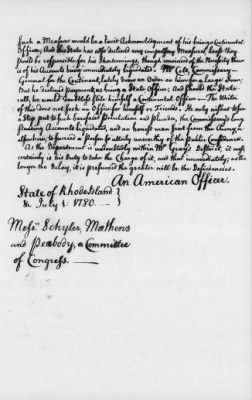 Such a Measure would be a tacit Acknowledgment of his being a Continental
Officer, And the State has also declined any compulsory Measures, lest they
should be responsible for his Shortcomings, though reminded of the Necessity there
is of his Accounts being immediately liquidated. Mr Cole, Commissary
General for the Continent, lately drew an Order on him for a large Sum;
But he declined payment, as being a State Officer; And should the State
call, he would doubtless stile himself a Continental Officer. The Writer
of this does not seek an Office for himself or Friends. He only wishes to see
a Stop put to such barefaced Peculation and Plunder, the Commissary's long
standing Accounts liquidated, and an honest man
to succeed a Person so utterly unworthy of the Public Confidence.
As the Department is undoubtedly within Mr Gray's District, it most
certainly is his Duty to take the Charge of it, and that immediately; as the
longer the Delay, it is presumed the greater will be the Deficiencies.
An American Officer.
State of Rhode Island
& July 1 1780.
Messrs Schyler, Mathews
and Peabody, a Committee
of Congress.